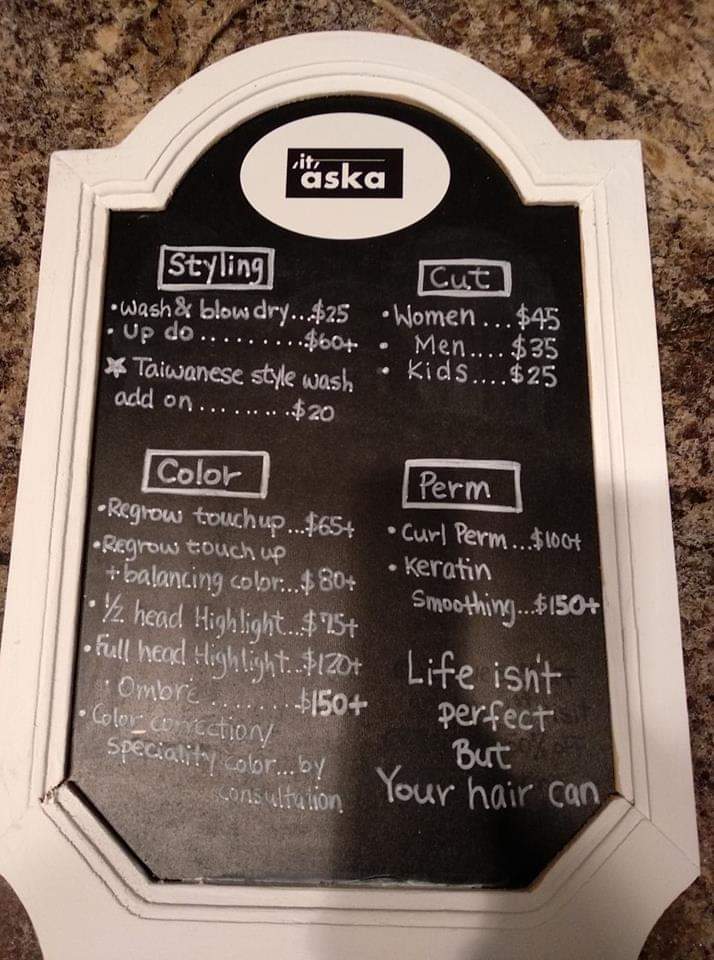 it
aska
Styling
•wash & blow dry...$25
• Up do ..........$60+
Taiwanese style wash
add on .........$20
Cut
• Women ... $45
• Men.... $35
• Kids....$25
Color
•Regrow touch up...$65+
•Regrow touch up
+balancing color...$80+
• ½ head Highlight...$75+
• Full head Highlight..$120+
• Ombre ........$150+
• Color correction/
speciality color...by
consultation
Perm
• Curl Perm...$100+
• Keratin
Smoothing...$150+
Life isn't
perfect
But
Your hair can